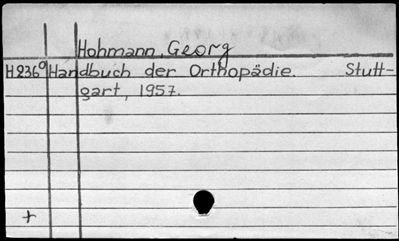 Hohmann, Georg
H236⁹ Handbuch der Orthopädie. Stutt-
gart, 1957.
+